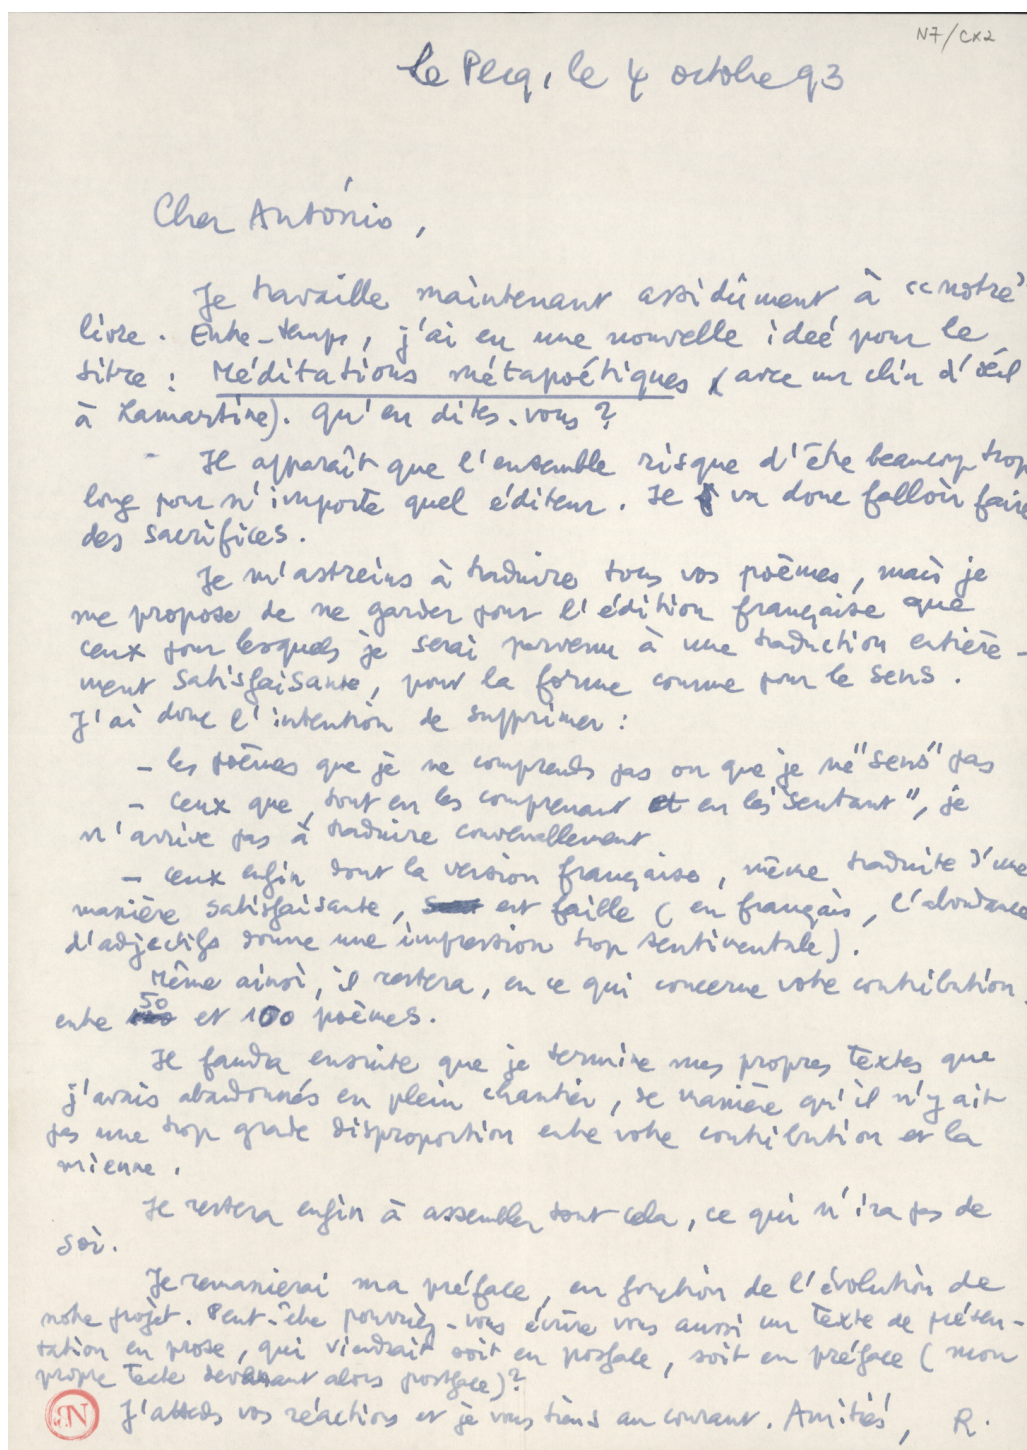 N7/CX2
Le Pecq, le 4 octobre 93
Cher António,
Je travaille maintenant assidûment à "notre"
livre. Entre-temps, j'ai eu une nouvelle idée pour le
titre : Méditations métapoétiques (avec un clin d'œil
à Lamartine). Qu'en dites-vous ?
Il apparaît que l'ensemble risque d'être beaucoup trop
long pour n'importe quel éditeur. Il va donc falloir faire
des sacrifices.
Je m'astreins à traduire tous vos poèmes, mais je
me propose de ne garder pour l'édition française que
ceux pour lesquels je serai parvenu à une traduction entière-
ment satisfaisante, pour la forme comme pour le sens.
J'ai donc l'intention de supprimer :
- les poèmes que je ne comprends pas ou que je ne "sens" pas
- ceux que, tout en les comprenant et en les "sentant", je
n'arrive pas à traduire convenablement
- ceux enfin dont la version française, même traduite d'une
manière satisfaisante, est faille (en français, l'abondance
d'adjectifs donne une impression trop sentimentale).
Même ainsi, il restera, en ce qui concerne votre contribution,
entre 50 et 100 poèmes.
Il faudra ensuite que je termine mes propres textes que
j'avais abandonnés en plein chantier, de manière qu'il n'y ait
pas une trop grade disproportion entre votre contribution et la
mienne.
Il restera enfin à assembler tout cela, ce qui n'ira pas de
soi.
Je remanierai ma préface, en fonction de l'évolution de
notre projet. Peut-être pourriez-vous écrire vous aussi un texte de présen-
tation en prose, qui viendrait soit en postface, soit en préface (mon
propre texte devenant alors postface) ?
J'attends vos réactions et je vous tiens au courant. Amitiés, R.